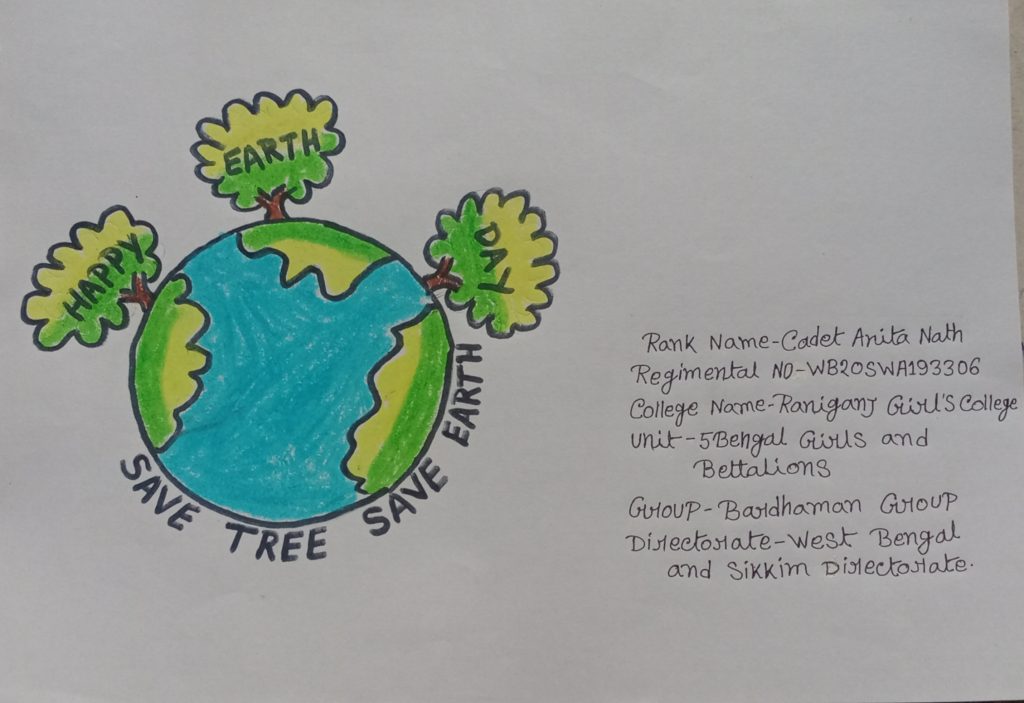 HAPPY
EARTH
DAY
SAVE TREE SAVE EARTH
Rank Name-Cadet Anita Nath
Regimental NO-WB20SWA193306
College Name-Raniganj Girl's College
Unit-5Bengal Girls and
Bettalions
Group-Bardhaman Group
Directorate-West Bengal
and Sikkim Directorate.